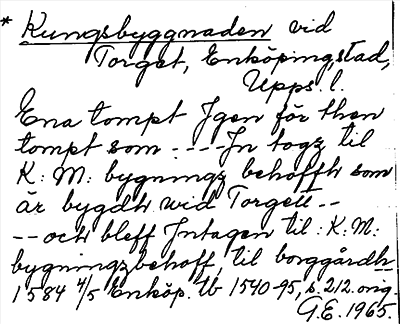 * Kungsbyggnaden vid
Torget, Enköping, stad,
Upps. l.
Ena tompt Igen för then
tompt som - - - - In togz til
K: M: bygningz behoffh som
är bygdh wid Torgett - -
- - och bleff Intagen til : K: M:
bygningzbehoff, til borggårdh
1584 4/5 Enköp. tb 1540-95, s. 212. orig.
G.E. 1965.